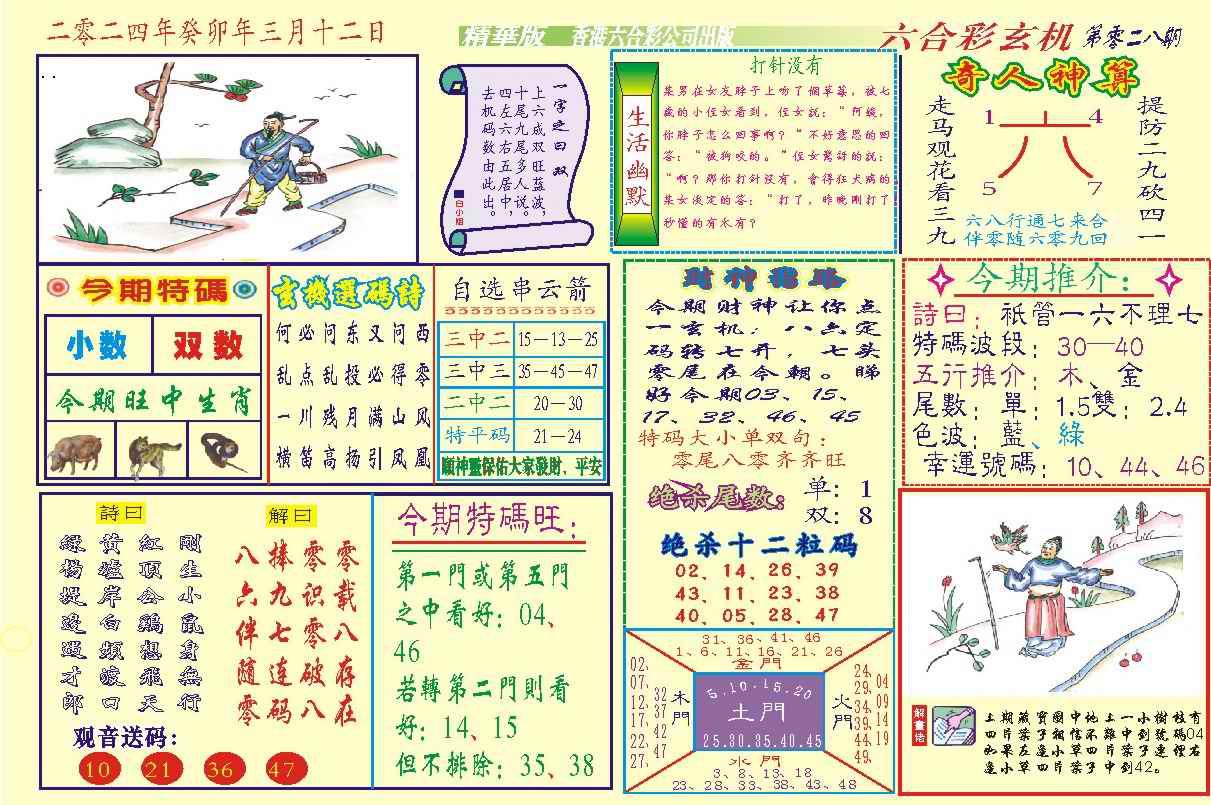 二零二四年癸卯年三月十二日
精華版 香港六合彩公司出版
六合彩玄机 第零二八期
一字之曰 双
上六成双旺蓝波，
十尾九尾多人说。
四左六右五居中，
去机码数由此出。
白小姐
生活幽默
打针没有
某男在女友脖子上吻了個草莓，被七
歲的小侄女看到，侄女説：“阿姨，
你脖子怎么回事啊？“不好意思的回
答：“被狗咬的。”侄女驚訝的説：
“啊？那你打針没有，會得狂犬病的
某女淡定的答：“打了，昨晚刚打了
秒懂的有木有？
奇人神算
走马观花看三九
提防二九砍四一
1 4
六
5 7
六八行通七来合
伴零随六零九回
今期特碼
小数 双数
今期旺中生肖
玄機選碼詩
何必问东又问西
乱点乱投必得零
一川残月满山风
横笛高扬引凤凰
自选串云箭
三中二 15－13－25
三中三 35－45－47
二中二 20－30
特平码 21－24
願神靈保佑大家發財、平安
财神龍路
今期财神让你点
一玄机：八六定
码转七开，七头
零尾在今朝。睇
好今期03、15、
17、32、46、45
特码大小单双句：
零尾八零齐齐旺
绝杀尾数：
单：1
双：8
绝杀十二粒码
02、14、26、39
43、11、23、38
40、05、28、47
今期推介：
詩曰：祇管一六不理七
特碼波段：30—40
五行推介：木、金
尾數：單：1.5雙：2.4
色波：藍、綠
幸運號碼：10、44、46
詩曰
剛生小鼠身無行
紅頂公鷄想飛天
黄墟岸白頻坡口
緑楊堤邊過才郎
解曰
零载八存在
零识零破八
捧九七连码
八六伴随零
观音送码：
10 21 36 47
今期特碼旺：
第一門或第五門
之中看好：04、
46
若轉第二門則看
好：14、15
但不排除：35、38
31、36、41、46
1、6、11、16、21、26
金門
02、
07、
12、
17、
22、
27、
32
37
42
47
木門
5.10.15.20
土門
25.30.35.40.45
火門
24、
29、
34、
39、
44、
49、
04
09
14
19
水門
3、8、13、18
23、28、33、38、43、48
解畫佬
上期藏寶圖中地上一小樹枝有
四片葉子相信不難中到號碼04
如果左邊小草四片葉子連裡右
邊小草四片葉子中到42。